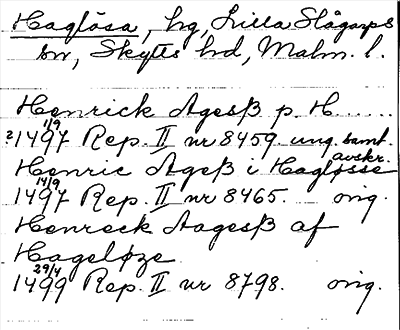 Haglösa, by, Lilla Slågarps
sn, Skytts hd, Malm. l.
Henrick Agesß p. H......
1/9
? 1497 Rep. II nr 8459 ung. samt.
avskr.
Henric Ageß i Hagløsse
14/9
1497 Rep. II nr 8465. orig.
Henreck Aagesß af
Hageløze
29/4
1499 Rep. II nr 8798. orig.